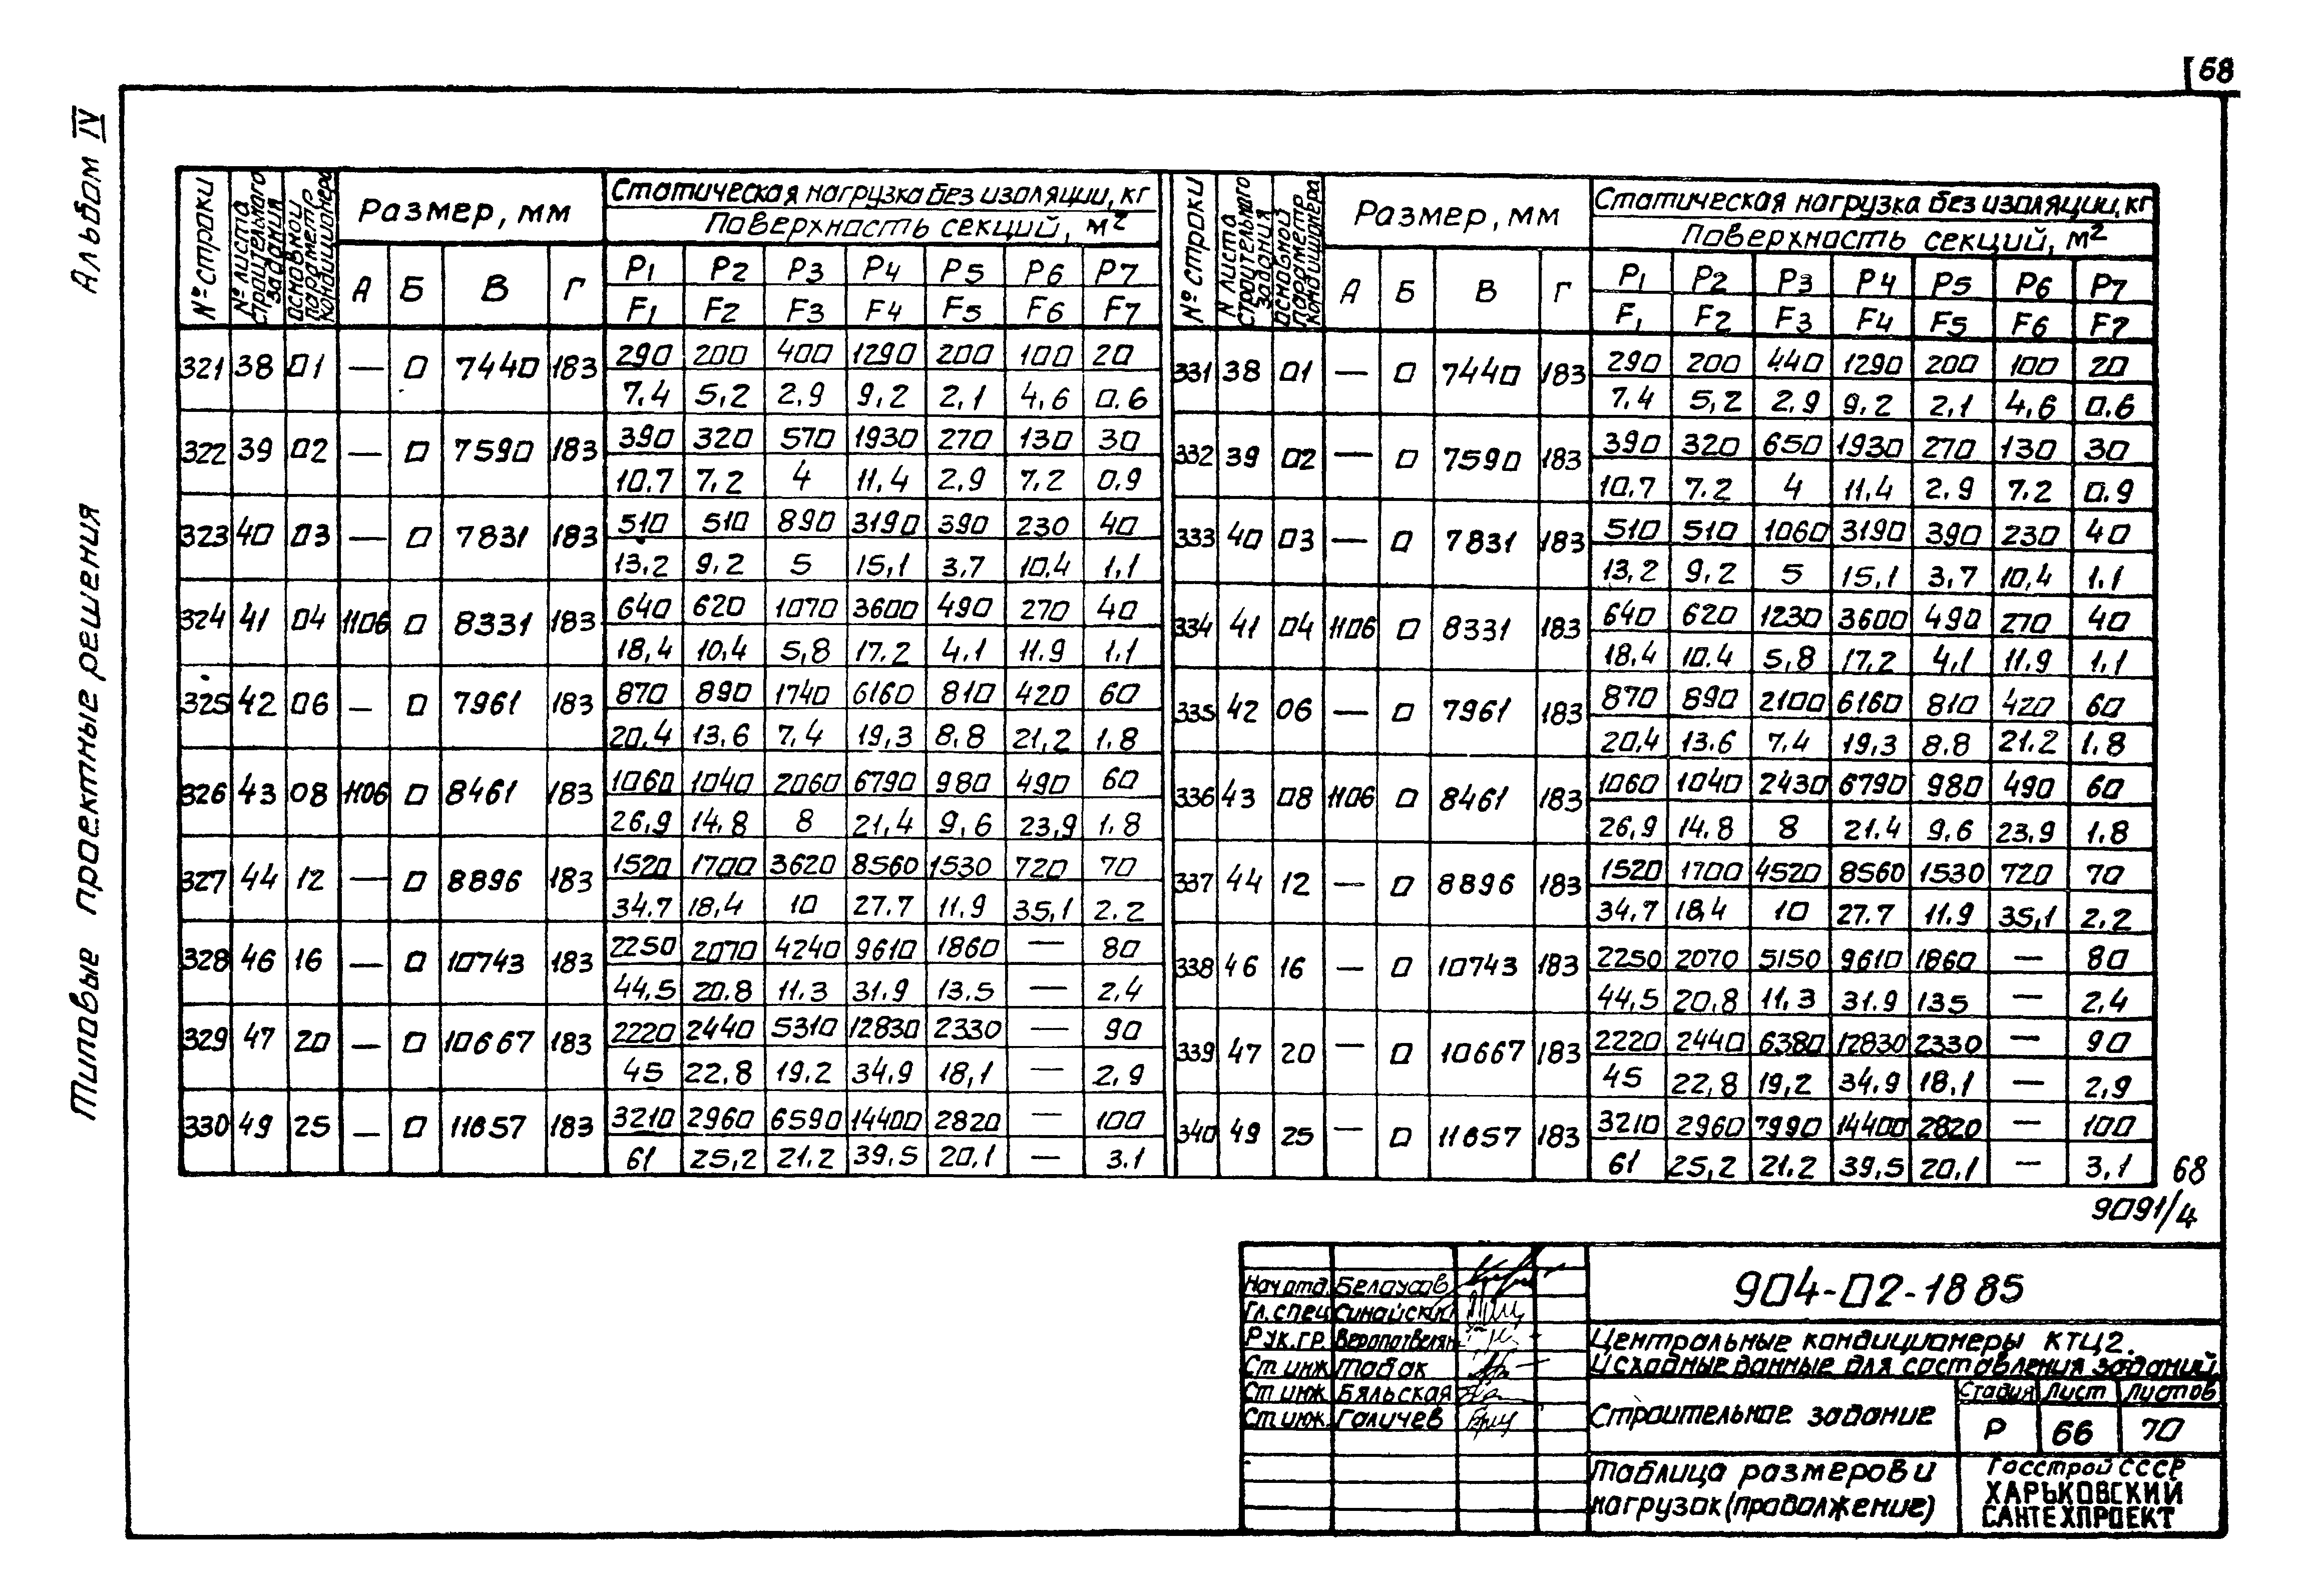 68
Альбом IV
Типовые проектные решения
№ строки | № листа строительного задания | основной параметр кондиционера | Размер, мм | Статическая нагрузка без изоляции, кг
Поверхность секций, м²
А | Б | В | Г | P1 | P2 | P3 | P4 | P5 | P6 | P7
F1 | F2 | F3 | F4 | F5 | F6 | F7
321 | 38 | 01 | — | 0 | 7440 | 183 | 290 | 200 | 400 | 1290 | 200 | 100 | 20
7.4 | 5,2 | 2.9 | 9,2 | 2,1 | 4,6 | 0.6
322 | 39 | 02 | — | 0 | 7590 | 183 | 390 | 320 | 570 | 1930 | 270 | 130 | 30
10.7 | 7,2 | 4 | 11,4 | 2.9 | 7.2 | 0.9
323 | 40 | 03 | — | 0 | 7831 | 183 | 510 | 510 | 890 | 3190 | 390 | 230 | 40
13,2 | 9,2 | 5 | 15,1 | 3,7 | 10.4 | 1,1
324 | 41 | 04 | 1106 | 0 | 8331 | 183 | 640 | 620 | 1070 | 3600 | 490 | 270 | 40
18,4 | 10,4 | 5,8 | 17.2 | 4.1 | 11.9 | 1.1
325 | 42 | 06 | — | 0 | 7961 | 183 | 870 | 890 | 1740 | 6160 | 810 | 420 | 60
20.4 | 13,6 | 7,4 | 19,3 | 8,8 | 21,2 | 1.8
326 | 43 | 08 | 1106 | 0 | 8461 | 183 | 1060 | 1040 | 2060 | 6790 | 980 | 490 | 60
26,9 | 14,8 | 8 | 21,4 | 9,6 | 23,9 | 1.8
327 | 44 | 12 | — | 0 | 8896 | 183 | 1520 | 1700 | 3620 | 8560 | 1530 | 720 | 70
34.7 | 18,4 | 10 | 27.7 | 11.9 | 35,1 | 2.2
328 | 46 | 16 | — | 0 | 10743 | 183 | 2250 | 2070 | 4240 | 9610 | 1860 | — | 80
44.5 | 20.8 | 11.3 | 31.9 | 13.5 | — | 2,4
329 | 47 | 20 | — | 0 | 10667 | 183 | 2220 | 2440 | 5310 | 12830 | 2330 | — | 90
45 | 22,8 | 19.2 | 34.9 | 18,1 | — | 2,9
330 | 49 | 25 | — | 0 | 11657 | 183 | 3210 | 2960 | 6590 | 14400 | 2820 | — | 100
61 | 25,2 | 21.2 | 39.5 | 20,1 | — | 3.1
№ строки | N листа строительного задания | основной параметр кондиционера | Размер, мм | Статическая нагрузка без изоляции, кг
Поверхность секций, м²
А | Б | В | Г | P1 | P2 | P3 | P4 | P5 | P6 | P7
F1 | F2 | F3 | F4 | F5 | F6 | F7
331 | 38 | 01 | — | 0 | 7440 | 183 | 290 | 200 | 440 | 1290 | 200 | 100 | 20
7.4 | 5,2 | 2.9 | 9.2 | 2,1 | 4,6 | 0.6
332 | 39 | 02 | — | 0 | 7590 | 183 | 390 | 320 | 650 | 1930 | 270 | 130 | 30
10.7 | 7.2 | 4 | 11.4 | 2.9 | 7.2 | 0.9
333 | 40 | 03 | — | 0 | 7831 | 183 | 510 | 510 | 1060 | 3190 | 390 | 230 | 40
13,2 | 9,2 | 5 | 15,1 | 3,7 | 10,4 | 1.1
334 | 41 | 04 | 1106 | 0 | 8331 | 183 | 640 | 620 | 1230 | 3600 | 490 | 270 | 40
18.4 | 10.4 | 5,8 | 17,2 | 4,1 | 11.9 | 1,1
335 | 42 | 06 | — | 0 | 7961 | 183 | 870 | 890 | 2100 | 6160 | 810 | 420 | 60
20,4 | 13.6 | 7,4 | 19,3 | 8.8 | 21.2 | 1.8
336 | 43 | 08 | 1106 | 0 | 8461 | 183 | 1060 | 1040 | 2430 | 6790 | 980 | 490 | 60
26,9 | 14.8 | 8 | 21.4 | 9.6 | 23.9 | 1.8
337 | 44 | 12 | — | 0 | 8896 | 183 | 1520 | 1700 | 4520 | 8560 | 1530 | 720 | 70
34,7 | 18,4 | 10 | 27.7 | 11.9 | 35,1 | 2,2
338 | 46 | 16 | — | 0 | 10743 | 183 | 2250 | 2070 | 5150 | 9610 | 1860 | — | 80
44,5 | 20,8 | 11,3 | 31.9 | 135 | — | 2,4
339 | 47 | 20 | — | 0 | 10667 | 183 | 2220 | 2440 | 6380 | 12830 | 2330 | — | 90
45 | 22,8 | 19,2 | 34.9 | 18,1 | — | 2,9
340 | 49 | 25 | — | 0 | 11657 | 183 | 3210 | 2960 | 7990 | 14400 | 2820 | — | 100
61 | 25,2 | 21.2 | 39,5 | 20,1 | — | 3,1
68
9091/4
Нач отд. Белоусов
Гл. спец Синайский
Рук. гр.
Ст инж Табак
Ст инж. Бяльская
Ст инж. Галичев
904-02-1885
Центральные кондиционеры КТЦ2.
Исходные данные для составления заданий
Строительное задание
Стадия Лист Листов
Р 66 70
Таблица размеров и
нагрузок (продолжение)
Госстрой СССР
ХАРЬКОВСКИЙ
САНТЕХПРОЕКТ